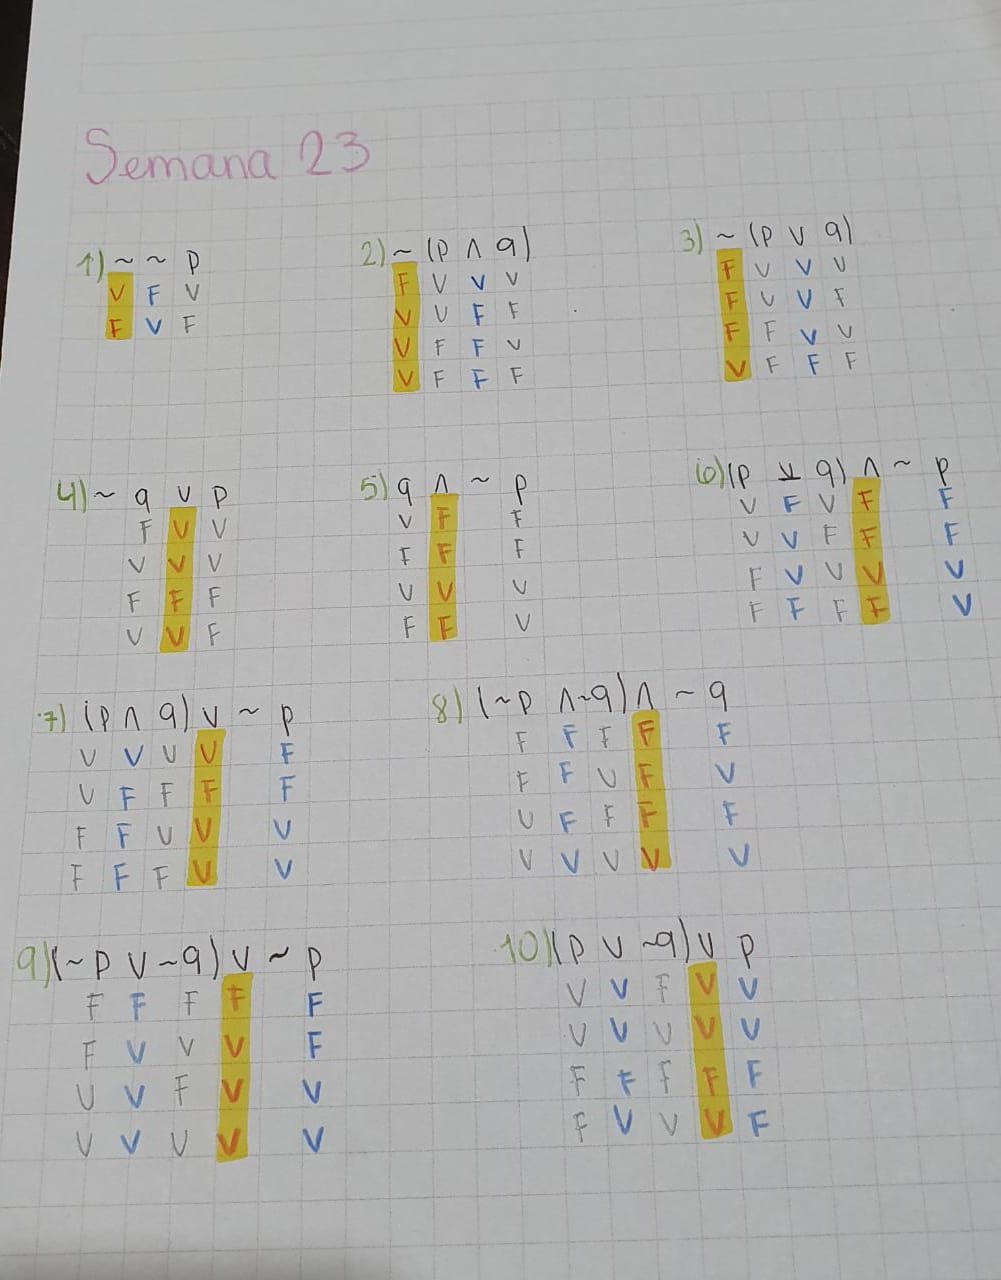 Semana 23
1) ~ ~ p
V F V
F V F
2) ~ (p ∧ q)
F V V V
V V F F
V F F V
V F F F
3) ~ (p ∨ q)
F V V V
F V V F
F F V V
V F F F
4) ~ q ∨ p
F V V
V V V
F F F
V V F
5) q ∧ ~ p
V F F
F F F
V V V
F F V
6) (p ⊻ q) ∧ ~ p
V F V F F
V V F F F
F V V V V
F F F F V
7) (p ∧ q) ∨ ~ p
V V V V F
V F F F F
F F V V V
F F F V V
8) (~p ∧ ~q) ∧ ~ q
F F F F F
F F V F V
V F F F F
V V V V V
9) (~p ∨ ~q) ∨ ~ p
F F F F F
F V V V F
V V F V V
V V V V V
10) (p ∨ ~q) ∨ p
V V F V V
V V V V V
F F F F F
F V V V F